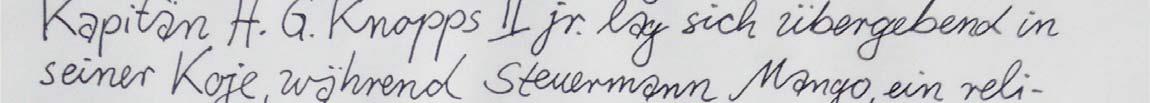 Kapitän H. G. Knopps II jr. lag sich übergebend in
seiner Koje, während Steuermann Mango, ein reli-